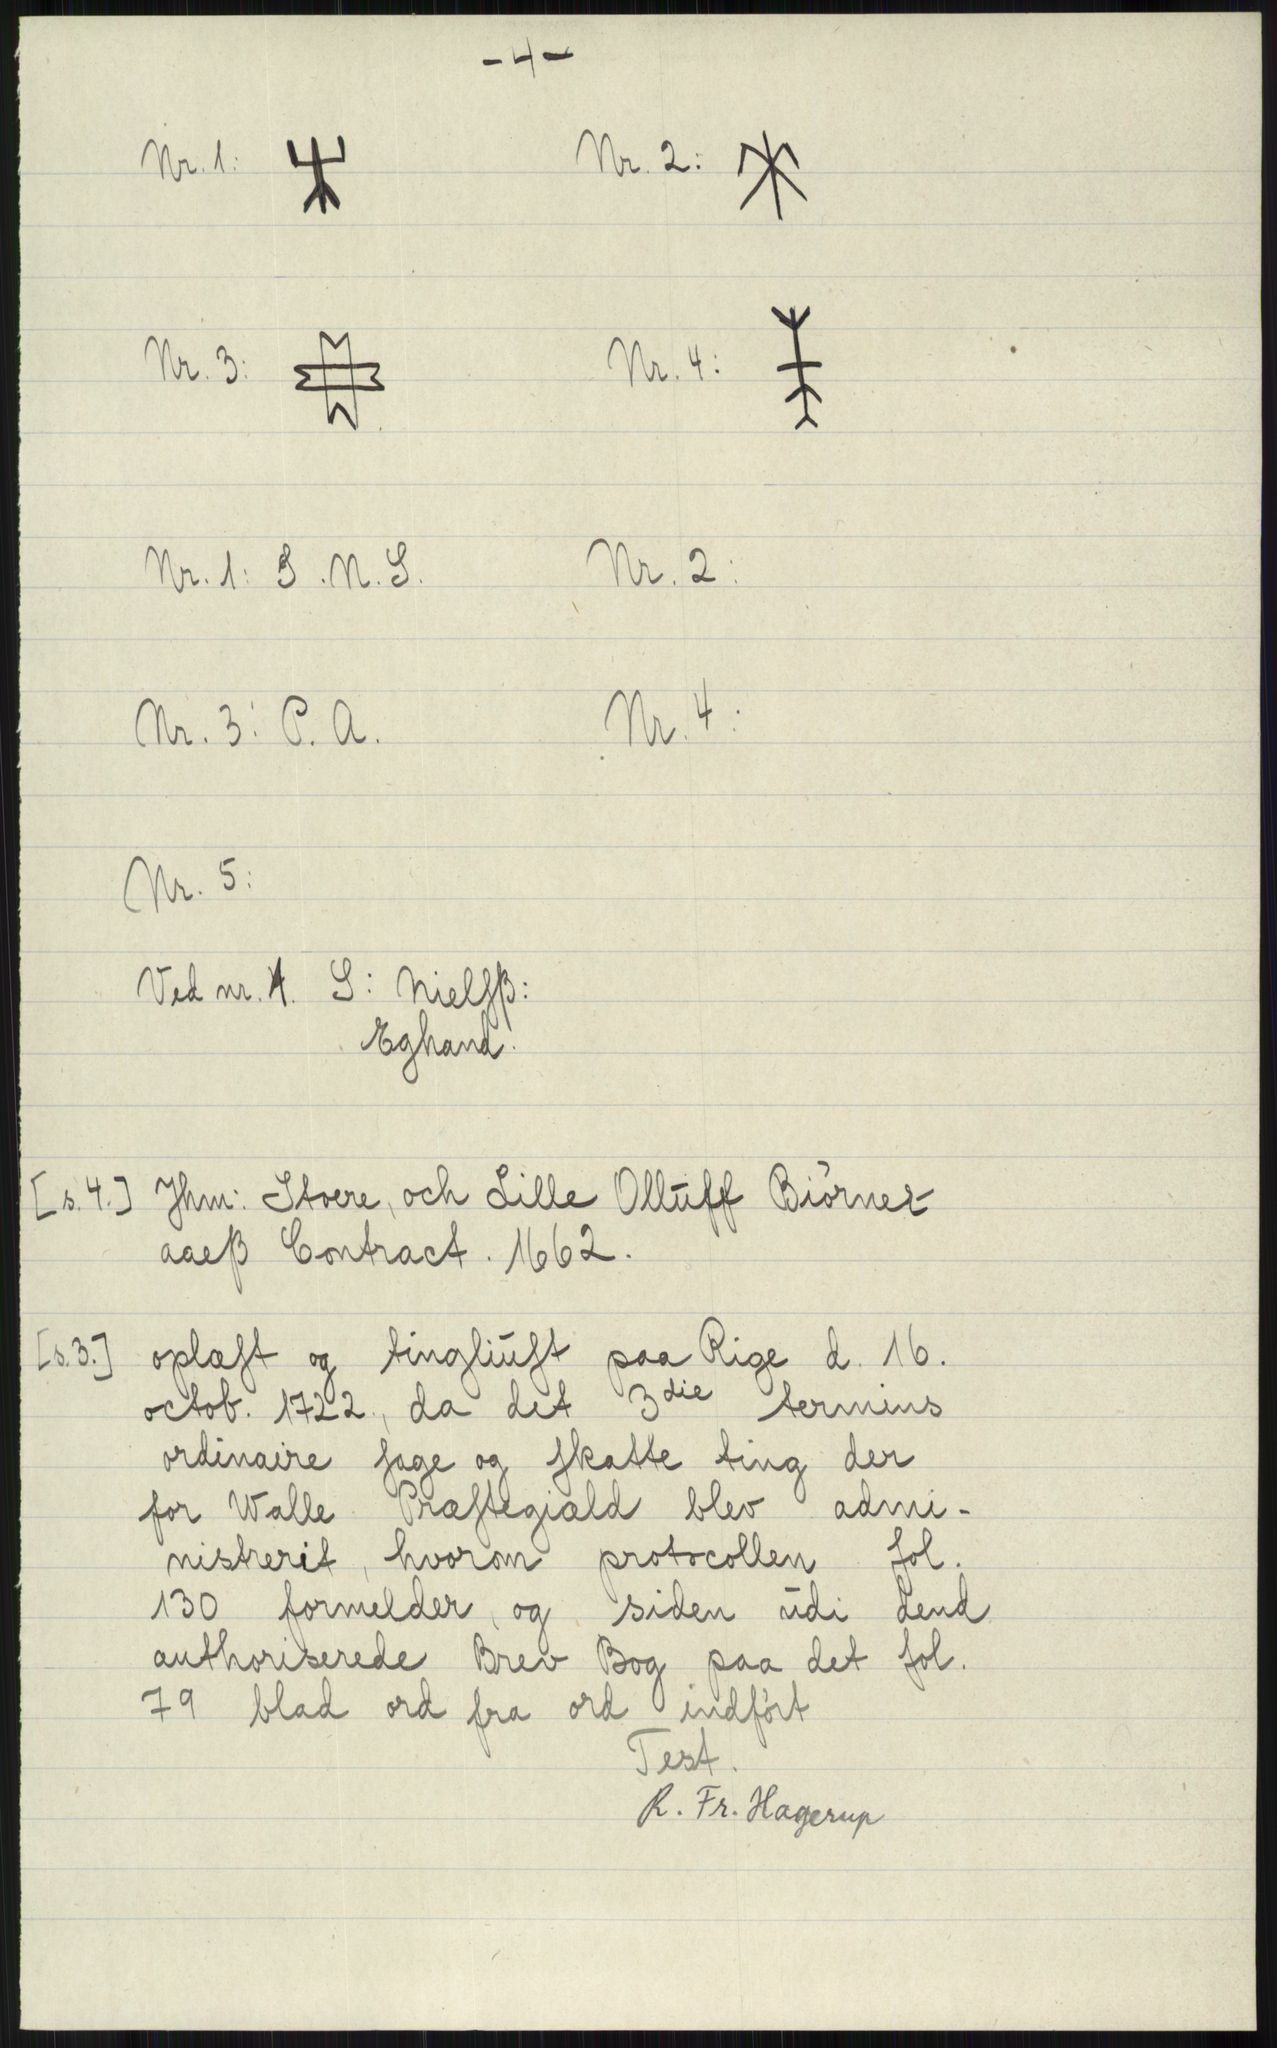 -4-
Nr. 1: Nr. 2:
Nr. 3: Nr. 4:
Nr. 1: S. N. S. Nr. 2:
Nr. 3: P. A. Nr. 4:
Nr. 5:
Ved nr. 1. S: Nielſß:
Eghand.
[s. 4.] Jhm: Stoere, och Lille Ollūff Biörnes
aaeß Contract. 1662.
[s. 3.] oplæſt og tingliūſt paa Rige d. 16.
octob. 1722, da det 3die termins
ordinaire ſage og ſkatte ting der
for Walle Præſtegiæld blev admi-
nistrerit, hvorom protocollen fol.
130 formelder, og siden ūdi dend
authoriserede Brev Bog paa det fol.
79 blad ord fra ord indfört
Test.
R. Fr. Hagerup